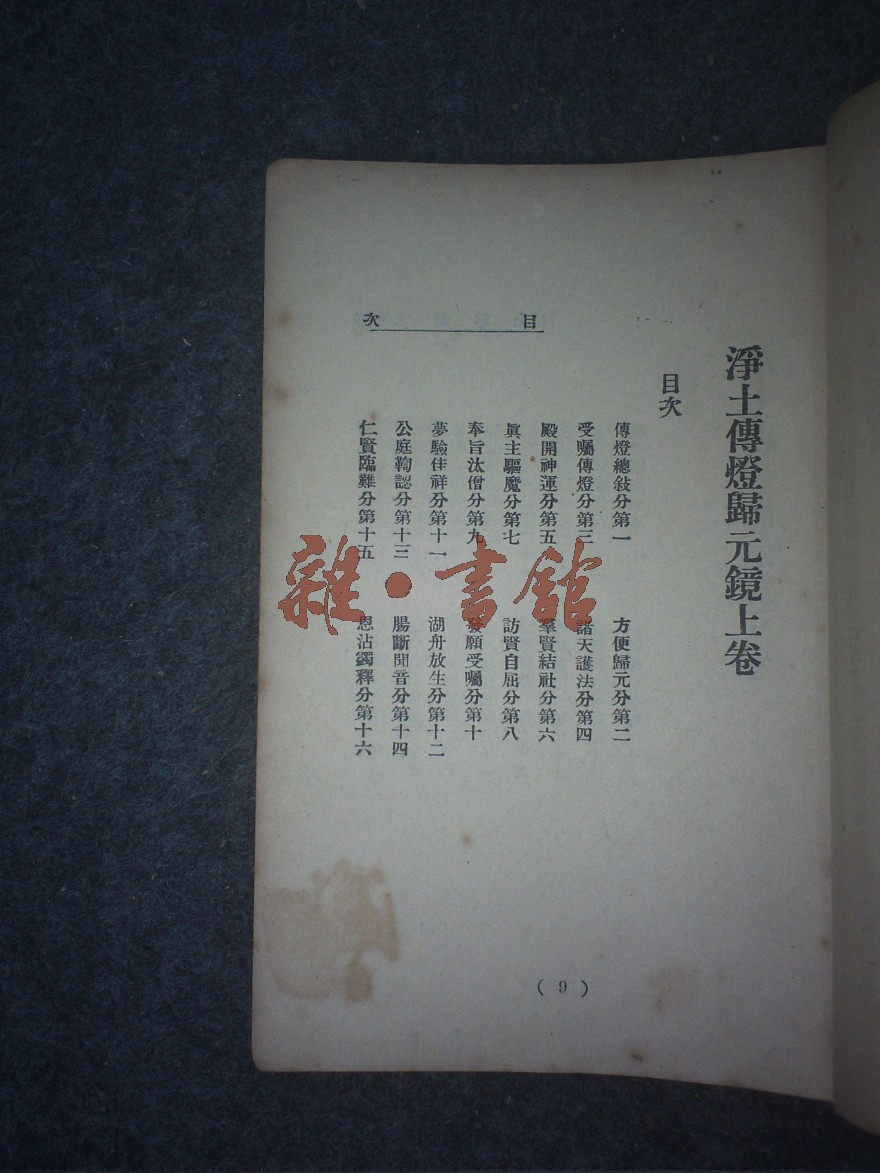 淨土傳燈歸元鏡上卷
目次
傳燈總敍分第一
方便歸元分第二
受囑傳燈分第三
諸天護法分第四
殿開神運分第五
羣賢結社分第六
眞主驅魔分第七
訪賢自屈分第八
奉旨汰僧分第九
發願受囑分第十
夢驗佳祥分第十一
湖舟放生分第十二
公庭鞫認分第十三
腸斷聞音分第十四
仁賢臨難分第十五
恩沾蠲釋分第十六
目次
(9)
雜·書館